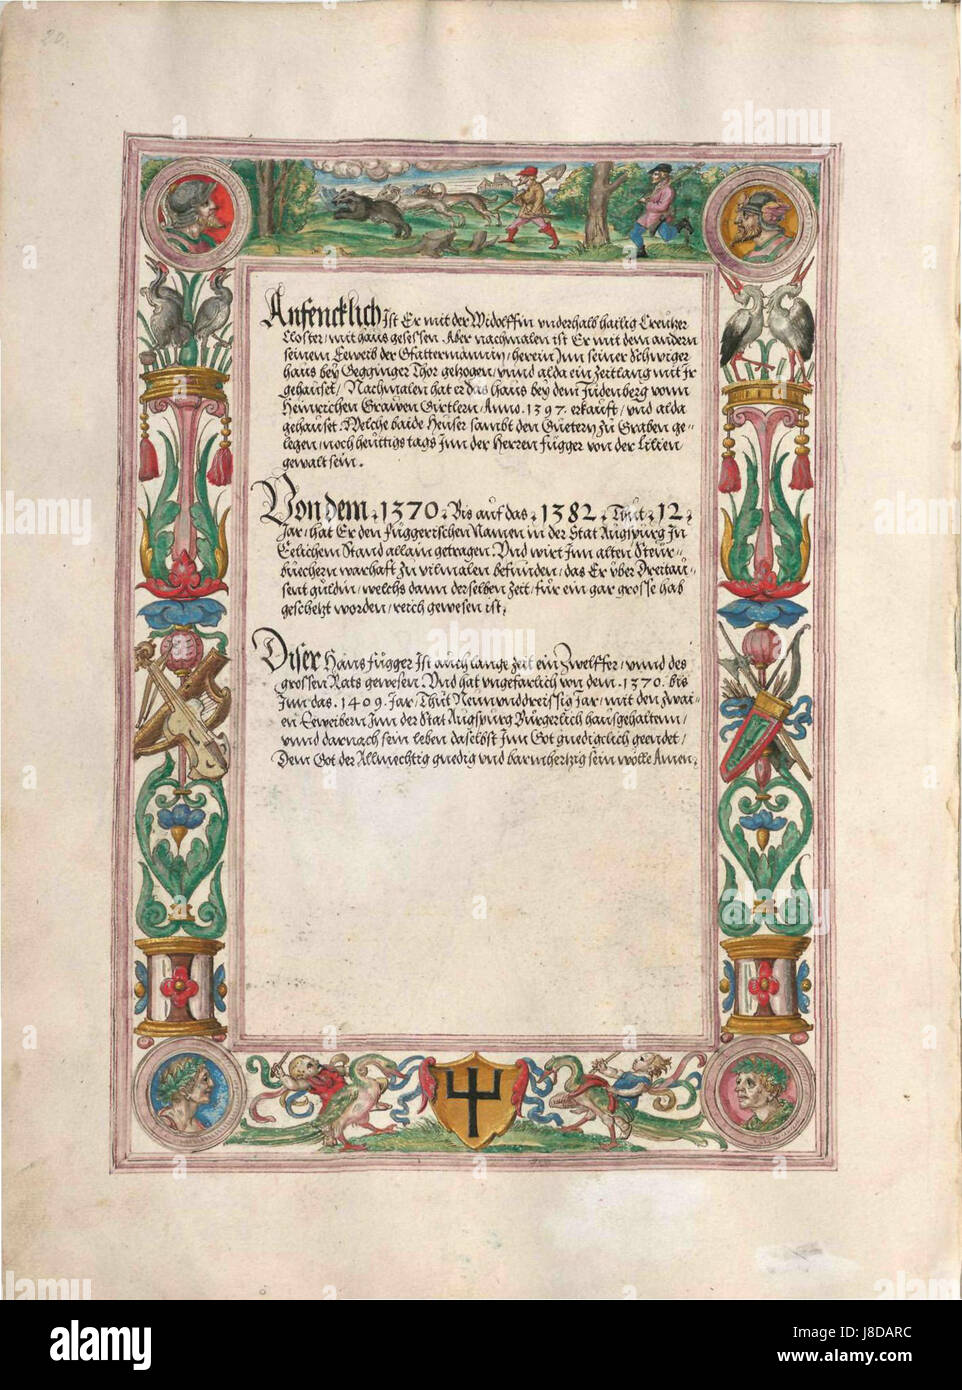 20.
Anfencklich Ist Er mit der Widolffin vnderhalb hailig Creutzer
Closter/ mit haus gesessen. Aber nachmalen ist Er mit dem andern
seinem Eeweib der Gfattermännin/ herein Inn seiner Schwiger
haus bey Gegginger Thor gezogen/ vnnd alda ein zeitlang mit Ir
gehauset/ Nachmalen hat er das haus bey dem Judenberg vonn
Heinrichen Grawen Girtlern/ Anno. 1397. erkaufft/ vnd alda
gehauset. Welche baide Heuser sambt den Guetern zu Graben ge=
legen/ noch heuttigs tags Inn der Herren Fugger von der Lilien
gewalt sein.
Von dem. 1370. Bis auf das. 1382. Thut. 12.
Jar/ hat Er den Fuggerischen Namen in der Stat Augspurg In
Eelichem Stand allain getragen. Vnd wirt Inn alten Steur=
buechern warhafft zu vilmalen befunden/ das Er vber Dreitau=
sent guldin/ welchs dann derselben Zeit/ fur ein gar grosse hab
gescheczt worden/ reich gewesen ist.
Diser Hans Fugger Ist auch lange zeit ein Zwelffer/ vnnd des
grossen Rats gewesen. Vnd hat vngefarlich von dem. 1370. bis
Inn das. 1409. Jar/ Thut Neinunddreissig Jar/ mit den zwai=
en Eeweibern Inn der Stat Augspurg Burgerlich haushaltenn/
vnnd darnach sein leben daselbst Inn Got gnedigclich geendet/
Dem Got der Allmechtig gnedig vnd barmhertzig sein wölle Amen.
alamy
alamy
Image ID: J8DARC
www.alamy.com